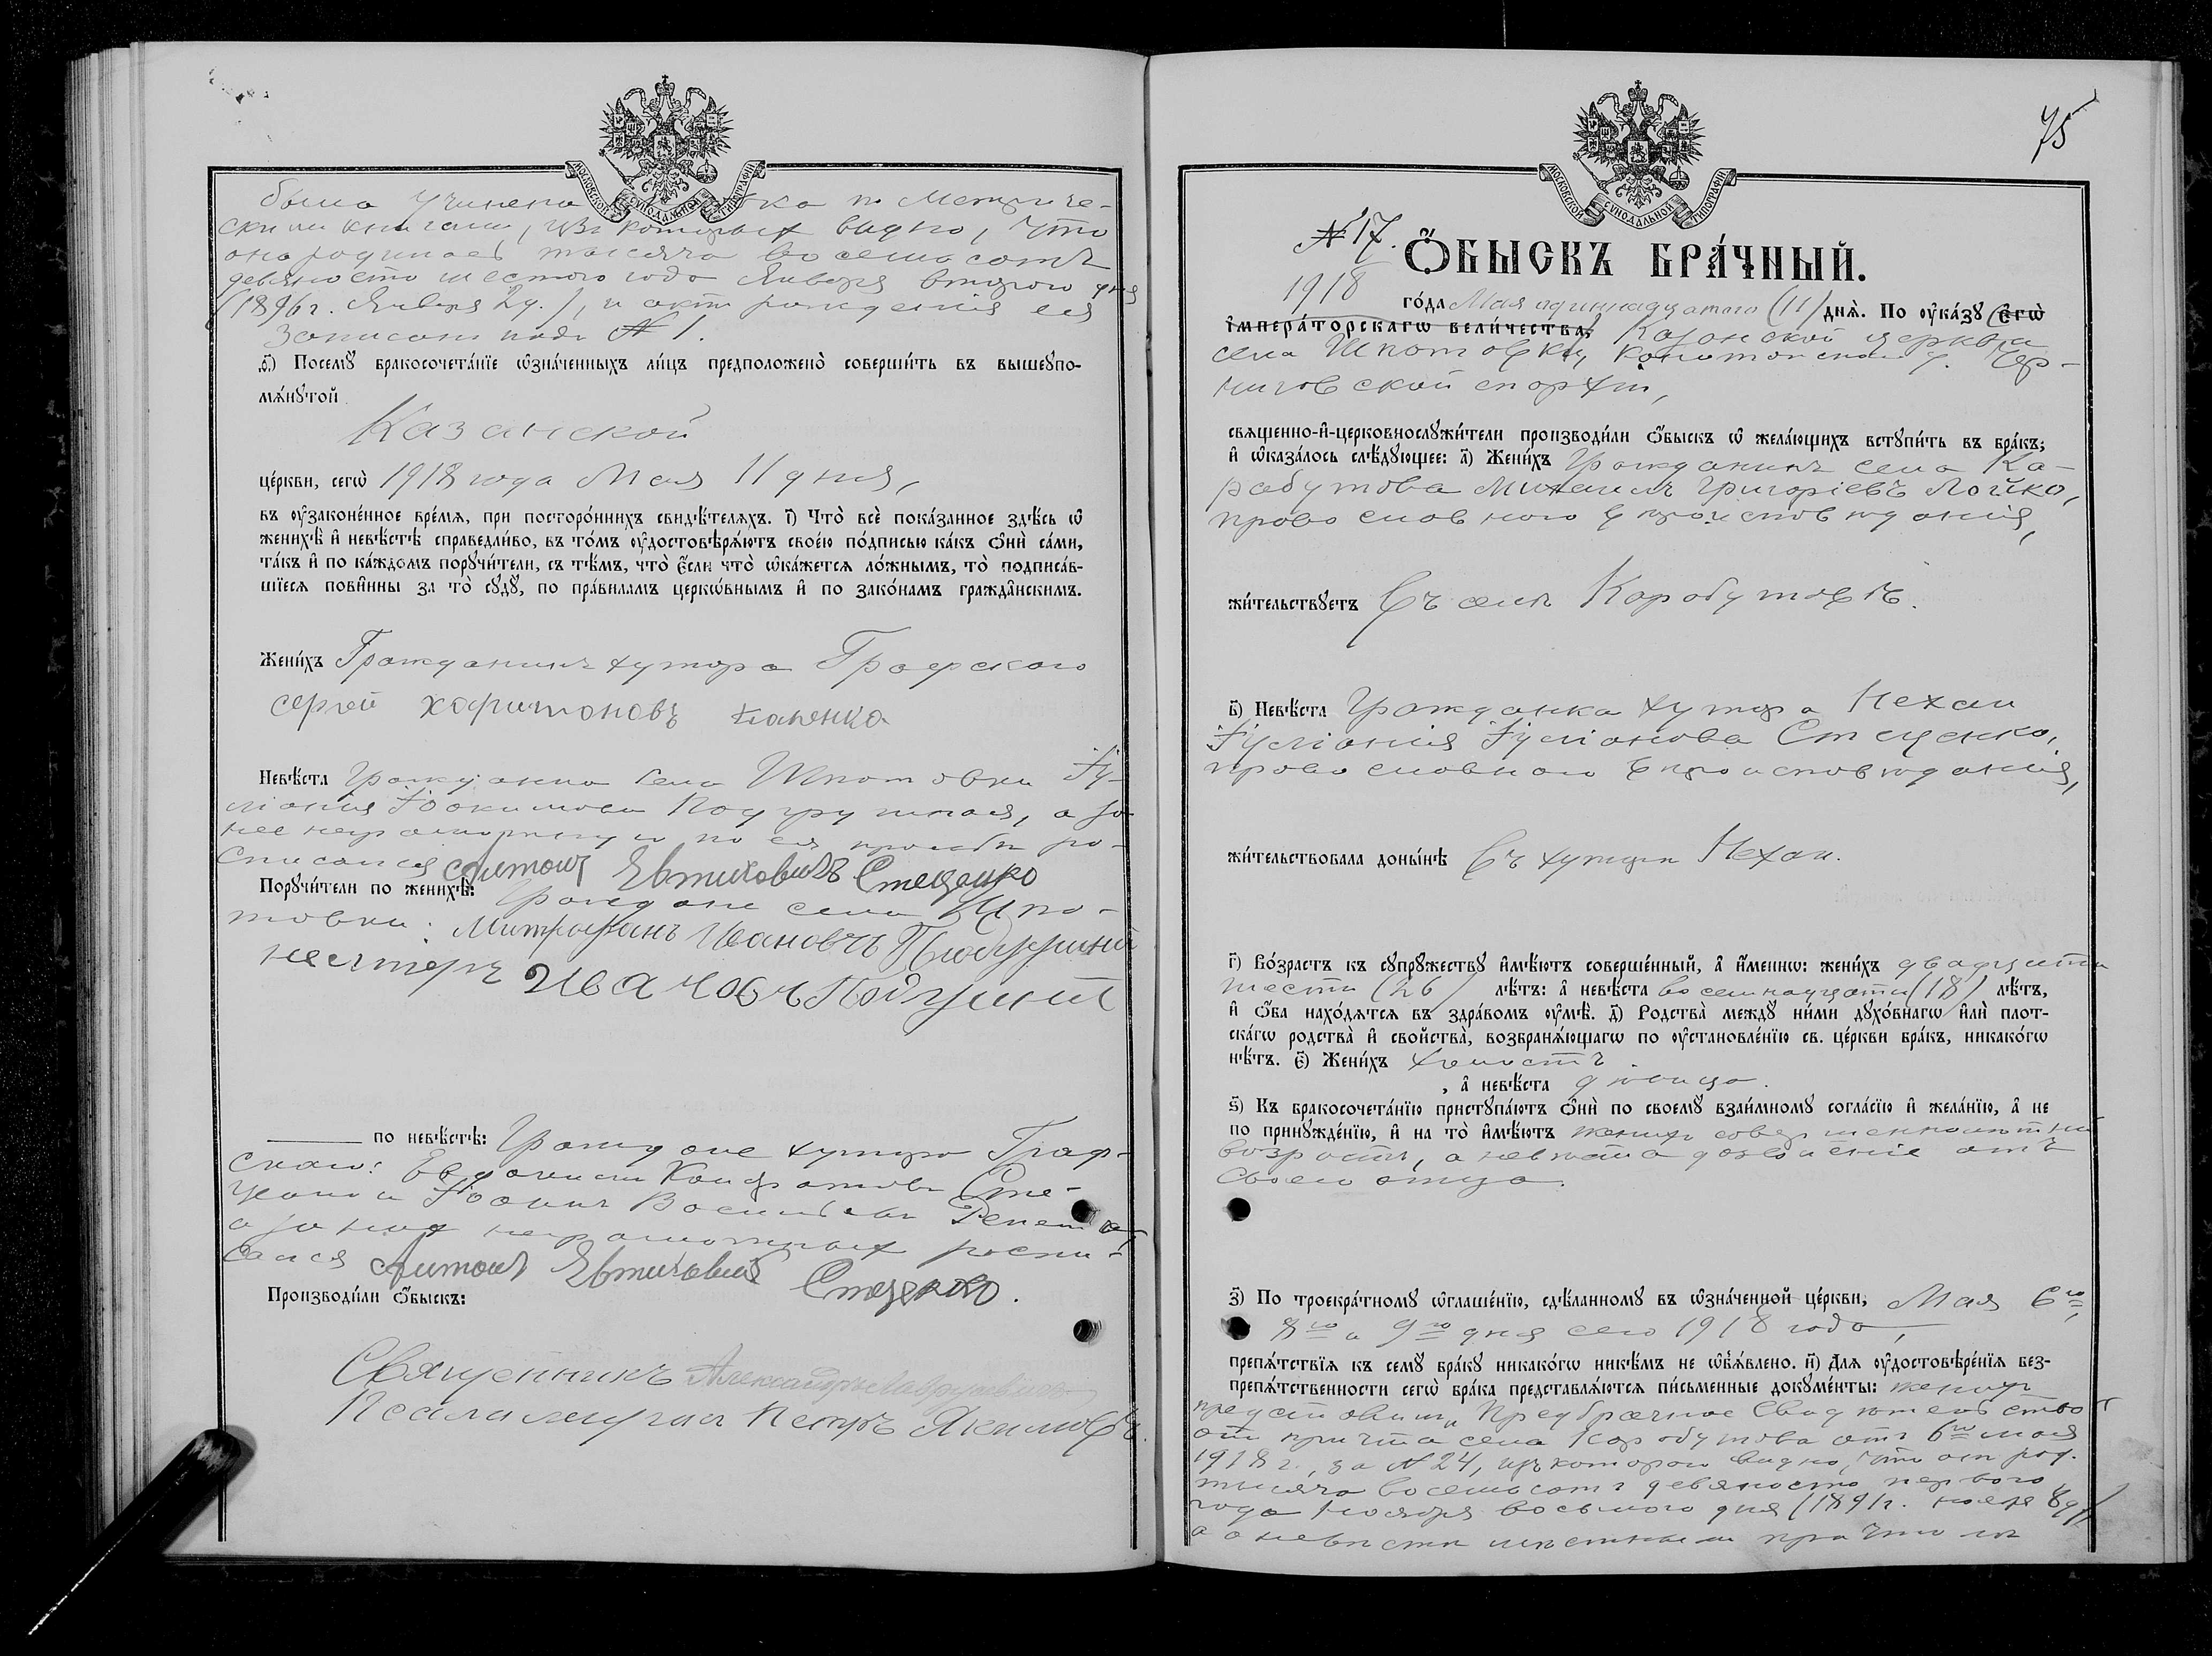 МОСКОВСКОЙ СѴНОДАЛЬНОЙ ТИПОГРАФІИ
была учинена ка по Метриче-
скимъ книгамъ, изъ которыхъ видно, что
она родилась тысяча восемьсотъ
девяносто шестого года Января второго дня
(1896 г. Января 2 д.), и актъ рожденія ея
записанъ подъ № 1.
ѳ҃) Посемꙋ бракосочета́нїе ѡ҆зна́ченныхъ ли́цъ предположено̀ соверши́ть въ вышеꙋпо-
мѧ́нꙋтой
Казанской
це́ркви, сегѡ̀ 1918 года Мая 11 дня,
въ ᲂу҆законе́нное вре́мѧ, при посторо́ннихъ свидѣ́телѧхъ. і҃) Что̀ всѐ пока́занное здѣ́сь ѡ҆
женихѣ̀ и҆ невѣ́стѣ справедли́во, въ то́мъ ᲂу҆достовѣрѧ́ютъ свое́ю по́дписью ка́къ ѻ҆нѝ са́ми,
та́къ и҆ по ка́ждомъ порꙋчи́тели, съ тѣ́мъ, что̀ є҆́сли что̀ ѡ҆ка́жетсѧ ло́жнымъ, то̀ подписа́в-
шїесѧ пови́нны за то̀ сꙋдꙋ̀, по пра́виламъ церкѡ́внымъ и҆ по зако́намъ гражда̑нскимъ.
Жени́хъ Гражданинъ хутора Графскаго
Сергей Харитоновъ
Невѣ́ста Гражданка села Шпотовки Іу-
ліанія Іоакимова Подгрушная, а за
нее неграмотную по ея просьбѣ ро-
списался Антонъ Евтиховичъ Стеценко
Порꙋчи́тели по женихѣ̀: Граждане села Шпо-
товки: Митрофанъ Ивановъ
Нестеръ Ивановъ
по невѣ́стѣ: Граждане хутора Граф-
скаго: Кондратовъ Сте-
ценко и Іоаннъ Васильевъ
а за нихъ неграмотныхъ роспи-
сался Антонъ Евтиховичъ
Стеценко.
Производи́ли ѻ҆́быскъ:
Священникъ Александръ
Псаломщикъ Петръ Якимовъ.
75
МОСКОВСКОЙ СѴНОДАЛЬНОЙ ТИПОГРАФІИ
№ 17.
Ѻ҆́БЫСКЪ БРА́ЧНЫЙ.
1918 го́да Мая одиннадцатаго (11) днѧ̀. По ᲂу҆ка́зꙋ Є҆гѡ̀
і҆мпера́торскагѡ вели́чества, Казанской церкви
села Шпотовки, Конотопскаго у. Чер-
ниговской епархіи,
свѧще́нно-и҆-церковнослꙋжи́тели производи́ли ѻ҆́быскъ ѡ҆ жела́ющихъ встꙋпи́ть въ бра́къ;
и҆ ѡ҆каза́лось слѣ́дꙋющее: а҃) Жени́хъ Гражданинъ села Ка-
рабутова Михаилъ Григоріевъ Лойко,
православнаго вѣроисповѣданія,
жи́тельствꙋетъ въ селѣ Карабутовѣ.
в҃) Невѣ́ста Гражданка хутора Нехаи
Іуліанія Іуліанова Стеценко,
православнаго вѣроисповѣданія,
жи́тельствовала доны́нѣ въ хуторѣ Нехаи.
г҃) Во́зрастъ къ сꙋпрꙋ́жествꙋ и҆мѣ́ютъ соверше́нный, и҆ и҆́меннѡ: жени́хъ двадцати
шести (26) лѣ́тъ: а҆ невѣ́ста восемнадцати (18) лѣ́тъ,
и҆ ѻ҆́ба нахо́дѧтсѧ въ здра́вомъ ᲂу҆мѣ̀. д҃) Родства̀ междꙋ̀ ни́ми дꙋхо́внагѡ и҆лѝ плот-
ска́гѡ родства̀ и҆ сво́йства̀, возбранѧ́ющагѡ по ᲂу҆становле́нїю св. це́ркви бра́къ, никако́гѡ
нѣ́тъ. є҃) Жени́хъ холостъ
, а҆ невѣ́ста дѣвица.
ѕ҃) Къ бракосочета́нїю пристꙋпа́ютъ ѻ҆нѝ по своемꙋ̀ взаи́мномꙋ согла́сїю и҆ жела́нїю, а҆ не
по принꙋжде́нїю, и҆ на то̀ и҆мѣ́ютъ женихъ совершеннолѣтній
возрастъ, а невѣста дозволеніе отъ
своего отца.
з҃) По троекра́тномꙋ ѡ҆глаше́нїю, сдѣ́ланномꙋ въ ѡ҆зна́ченной це́ркви, Мая 6го,
8го и 9го дня сего 1918 года,
препѧ́тствїѧ къ семꙋ̀ бра́кꙋ никако́гѡ никѣ́мъ не ѡ҆б̾ѧ́влено. и҃) Длѧ ᲂу҆достовѣре́нїѧ без-
препѧ́тственности сегѡ̀ бра́ка представлѧ́ютсѧ пи́сьменные докꙋме́нты: женихъ
представилъ Предбрачное Свидѣтельство
отъ причта села Карабутова отъ 6го мая
1918 г., за № 24, изъ котораго видно, что онъ род.
тысяча восемьсотъ девяносто перваго
года Ноября восьмого дня (1891 г. нояб. 8 д.)
а о невѣстѣ мѣстнымъ причтомъ